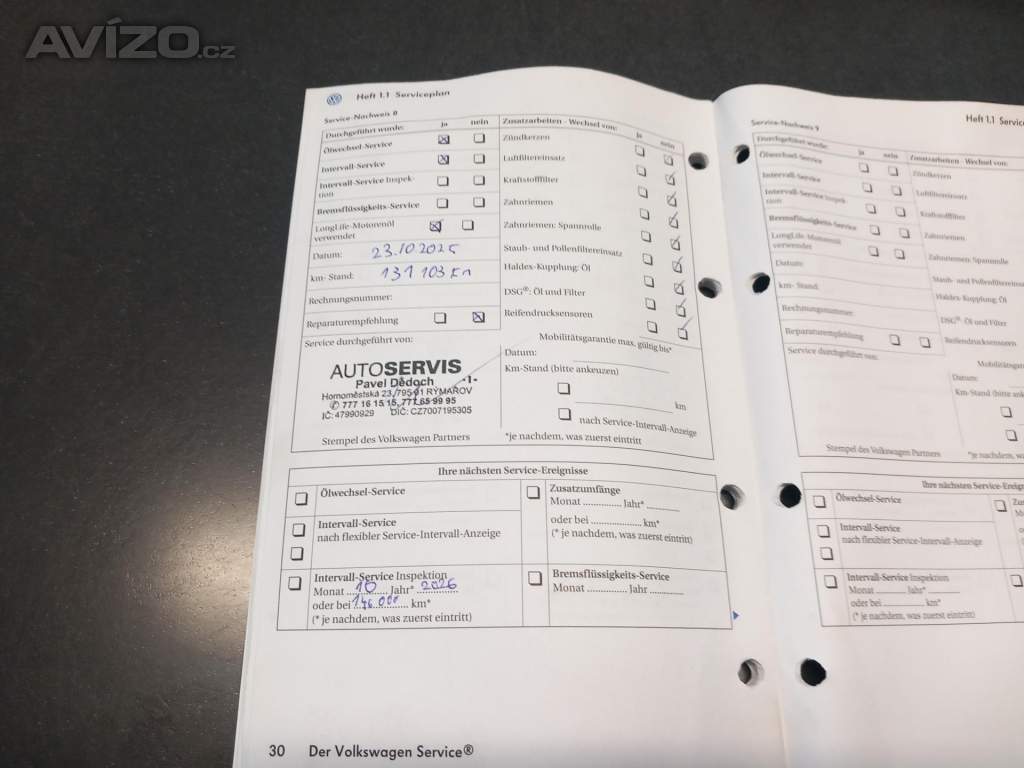 AVÍZO.cz
Heft 1.1 Serviceplan
Service-Nachweis 8
Durchgeführt wurde: ja nein
Ölwechsel-Service
Intervall-Service
Intervall-Service Inspek-
tion
Bremsflüssigkeits-Service
LongLife-Motorenöl
verwendet
Datum: 23.10.2025
km- Stand: 131 103 km
Rechnungsnummer:
Reparaturempfehlung
Service durchgeführt von:
AUTOSERVIS
Pavel Dědoch -1-
Hornoměstská 23, 795 01 RÝMAŘOV
✆ 777 16 15 15, 777 65 99 95
IČ: 47990929 DIČ: CZ7007195305
Stempel des Volkswagen Partners
Zusatzarbeiten - Wechsel von: ja nein
Zündkerzen
Luftfiltereinsatz
Kraftstofffilter
Zahnriemen
Zahnriemen: Spannrolle
Staub- und Pollenfiltereinsatz
Haldex-Kupplung: Öl
DSG®: Öl und Filter
Reifendrucksensoren
Mobilitätsgarantie max. gültig bis*
Datum:
Km-Stand (bitte ankeuzen)
km
nach Service-Intervall-Anzeige
*je nachdem, was zuerst eintritt
Ihre nächsten Service-Ereignisse
Ölwechsel-Service
Intervall-Service
nach flexibler Service-Intervall-Anzeige
Intervall-Service Inspektion
Monat 10 Jahr* 2026
oder bei 146.000 km*
(* je nachdem, was zuerst eintritt)
Zusatzumfänge
Monat .............. Jahr*...........
oder bei .................. km*
(* je nachdem, was zuerst eintritt)
Bremsflüssigkeits-Service
Monat .............. Jahr ............
30 Der Volkswagen Service®
Heft 1.1 Service
Service-Nachweis 9
Durchgeführt wurde: ja nein
Ölwechsel-Service
Intervall-Service
Intervall-Service Inspek-
tion
Bremsflüssigkeits-Service
LongLife-Motorenöl
verwendet
Datum:
km- Stand:
Rechnungsnummer:
Reparaturempfehlung
Service durchgeführt von:
Stempel des Volkswagen Partners
Zusatzarbeiten - Wechsel von:
Zündkerzen
Luftfiltereinsatz
Kraftstofffilter
Zahnriemen
Zahnriemen: Spannrolle
Staub- und Pollenfiltereinsa
Haldex-Kupplung: Öl
DSG®: Öl und Filter
Reifendrucksensoren
Mobilitätsgara
Datum:
Km-Stand (bitte ank
*je nachdem, was
Ihre nächsten Service-Ereig
Ölwechsel-Service
Intervall-Service
nach flexibler Service-Intervall-Anzeige
Intervall-Service Inspektion
Monat .............. Jahr*...........
oder bei .................. km*
(* je nachdem, was zuerst eintritt)